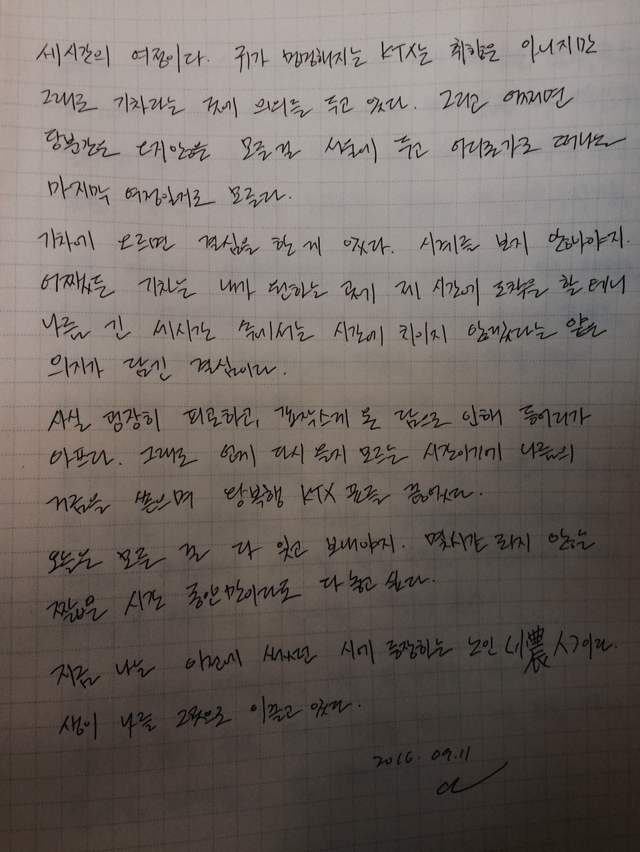 세시간의 여정이다. 귀가 멍멍해지는 KTX는 취향은 아니지만
그래도 기차라는 것에 의의를 두고 있다. 그리고 어쩌면
당분간은 모든걸 서울에 두고 어디론가로 떠나는
마지막 여정일지도 모른다.
기차에 오르면 결심을 한 게 있다. 시계를 보지 않아야지.
어쨌든 기차는 내가 원하는 곳에 제 시간에 도착을 할 테니
나름 긴 세시간 속에서는 시간에 치이지 않겠다는 얕은
의지가 담긴 결심이다.
사실 굉장히 피곤하고, 갑작스레 온 담으로 인해 등어리가
아프다. 그래도 언제 다시 올지 모르는 시간이기에 나름의
거금을 쏟으며 왕복행 KTX 표를 끊었다.
오늘은 모든 걸 다 잊고 보내야지. 몇시간 되지 않는
짧은 시간 동안만이라도 다 놓고 싶다.
지금 나는 이전에 써썼던 시에 등장하는 노인 <農人>이다.
생이 나를 그곳으로 이끌고 있다.
2016. 09. 11